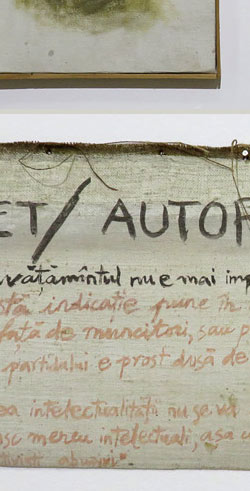 ET/ AUTOR
vățămîntul nu e mai imp
stă indicație pune în
față de muncitori, sau p
partidului e prost dusă de
ea intelectualității nu se va
sc mereu intelectuali, așa c
abuziv"